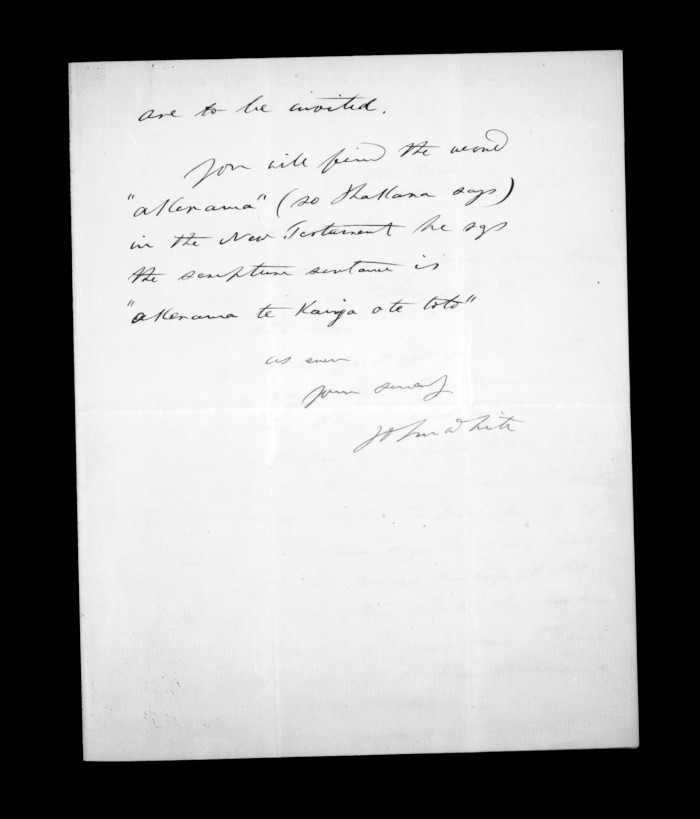 are to be invited.
You will find the word
"akerama" (so Hakana says)
in the New Testament he sys
the scripture sentence is
"akerama te Kainga o te toto"
as ever
yours
John White